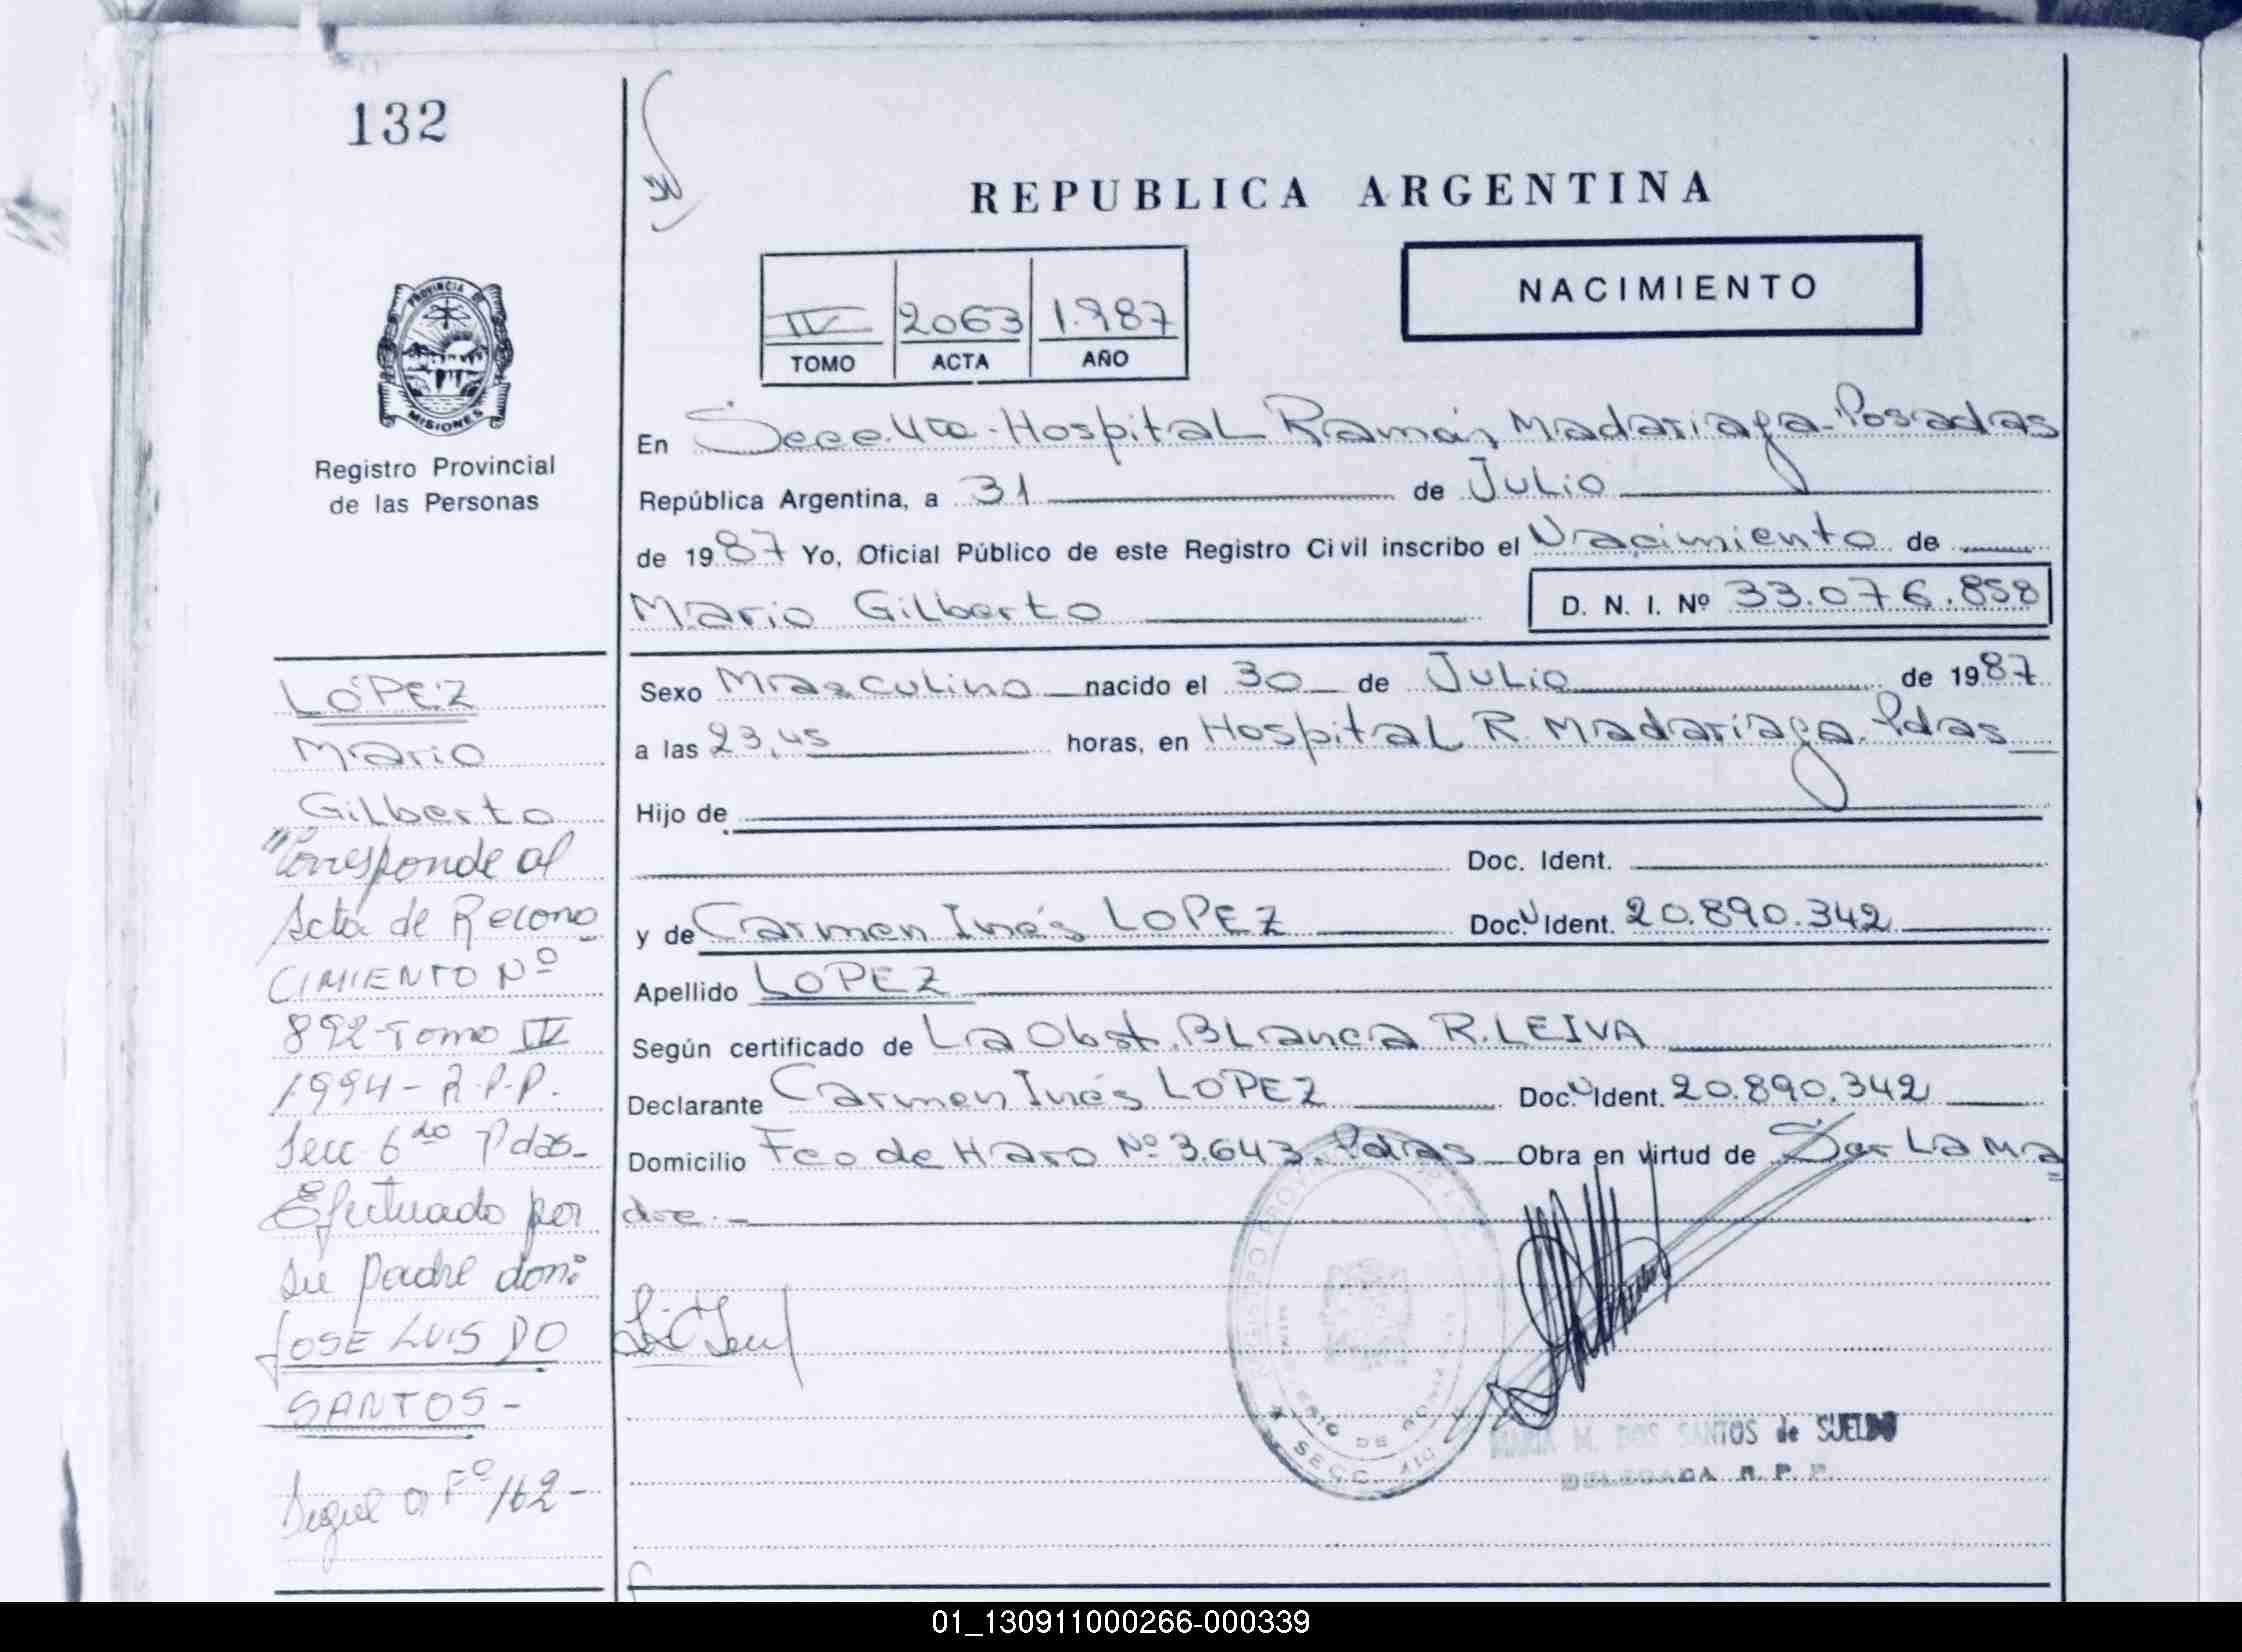 132
REPUBLICA ARGENTINA
NACIMIENTO
IV 2063 1.987
TOMO ACTA AÑO
PROVINCIA DE
MISIONES
Registro Provincial
de las Personas
En Secc. 4ta - Hospital Ramón Madariaga - Posadas
República Argentina, a 31 de Julio
de 1987 Yo, Oficial Público de este Registro Civil inscribo el Nacimiento de
Mario Gilberto D. N. I. Nº 33.076.858
Sexo Masculino nacido el 30 de Julio de 1987
a las 23,45 horas, en Hospital R. Madariaga. Pdas
Hijo de
Doc. Ident.
y de Carmen Inés LOPEZ Doc. Ident. 20.890.342
Apellido LOPEZ
Según certificado de La Obst. Blanca R. LEIVA
Declarante Carmen Inés LOPEZ Doc. Ident. 20.890.342
Domicilio Fco de Haro Nº 3.643. Pdas Obra en virtud de Ser La Ma
dre.-
MARIA M. DOS SANTOS de SUELDO
DELEGADA R. P. P.
LOPEZ
Mario
Gilberto
"Corresponde al
Acta de Recono
CIMIENTO Nº
892-Tomo IV
1994- R.P.P.
Secc 6 Pdas-
Efectuado por
su padre don:
JOSE LUIS DO
SANTOS-
Sigue a Fº 162-
01_130911000266-000339